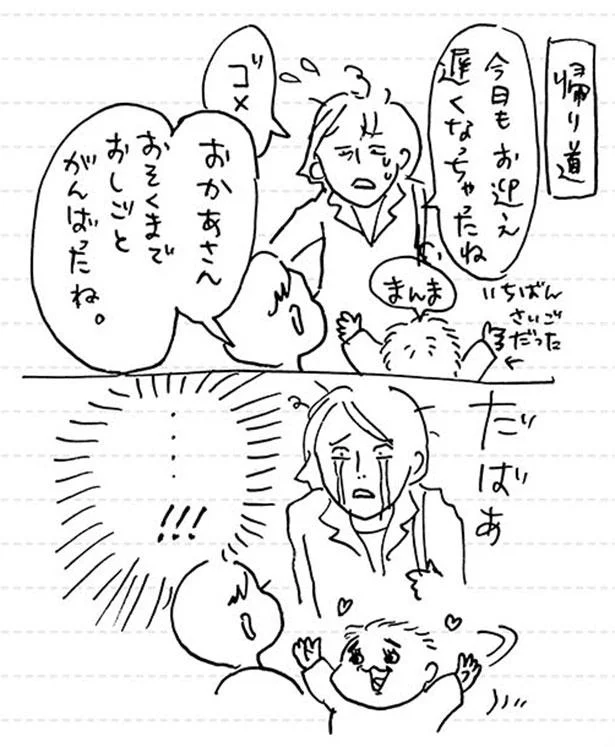 帰り道
今日もお迎え
遅くなっちゃったね
ゴメ゛
まんま
いちばん
さいご
だった
おかあさん
おそくまで
おしごと
がんばったね。
だばぁ
⋮
!!!